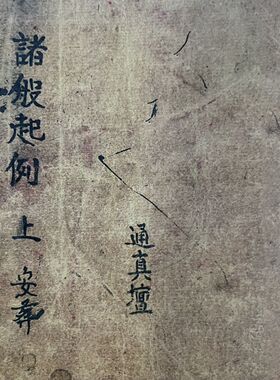 諸般起例 上 安葬
通真壇